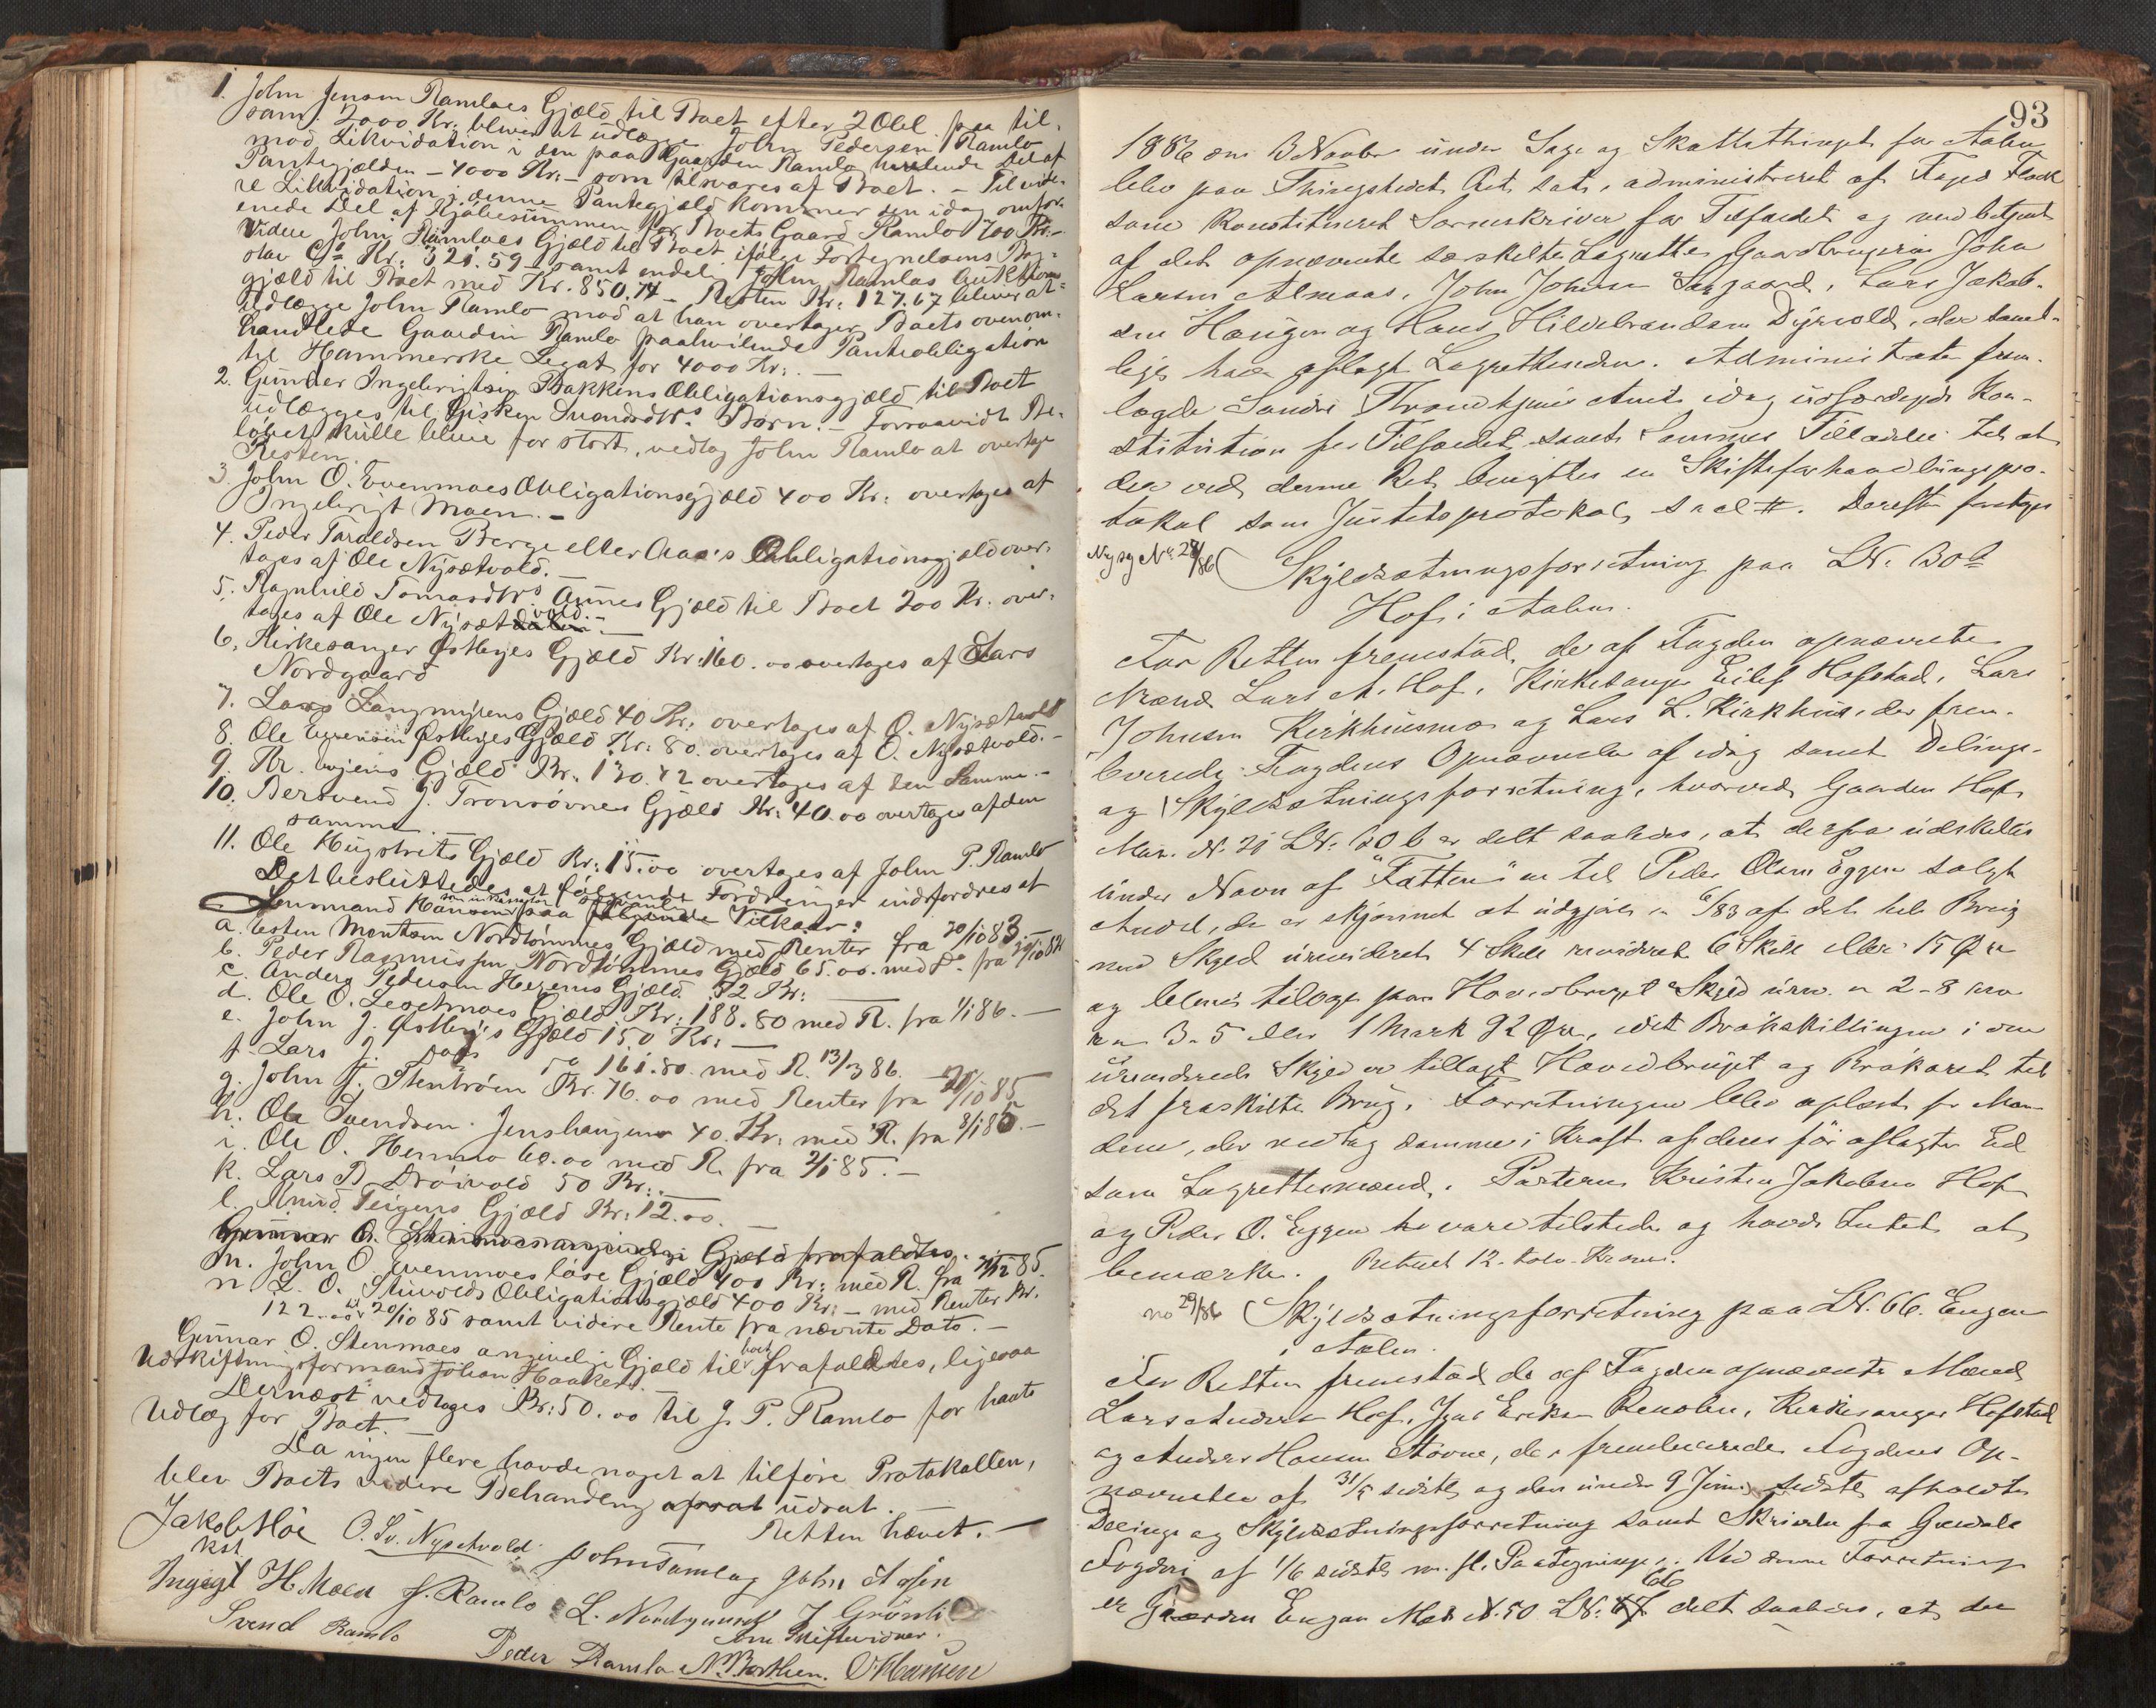 1. John Jensen Ramloes Gjæld til Boet efter 2 Obl. paa til-
sam. 2000 Kr. bliver at udlægge John Pedersen Ramlo
mod Likvidation i den paa Gaarden Ramlo hvilende Del af
Pantegjælden - 4000 Kr. - som tilsvares af Boet. - Til vide-
re Likvidation i denne Pantegjæld kommer den idag omfor-
enede Del af Kjøbesummen for Boets Gaard Ramlo 700 Kr. -
Videre John Ramloes Gjæld til Boet ifølge Fortegnelsens Bog-
stav C Kr. 321.59 - samt endelig John Ramlos
gjæld til Boet med Kr. 850.74 - Resten Kr. 127.67 bliver at
udlægge John Ramlo mod at han overtager Boets ovenom-
handlede Gaarden Ramlo paahvilende Panteobligation
til Hammerske Legat for 4000 Kr. -
2. Gunder Ingebrigtsen Bakkens Obligationsgjæld til Boet
udlægges til Gisken Svendsdtrs Børn. - Forsaavidt Be-
løbet skulle blive for stort, vedtog John Ramlo at overtage
Resten.
3. John O. Evenmoes Obligationsgjæld 400 Kr. overtages af
Ingebrigt Moen. -
4. Peder Taraldsen Berge eller Aas's Obligationsgjæld over-
tages af Ole Nysætvold. -
5. Ragnhild Tomasdtrs Aunes Gjæld til Boet 200 Kr. over-
tages af Ole Nysætvold. -
6. Kirkesanger Østbyes Gjæld Kr. 160.00 overtages af Lars
Nordgaard
7. Lars Langmyrens Gjæld 40 Kr. overtages af O. Nysætvold
8. Ole Østbyes Gjæld Kr. 80. overtages af O. Nysætvold. -
9. Kr. Gjæld Kr. 130.42 overtages af den Samme. -
10. Bersvend J. Tronsøvnes Gjæld Kr. 40.00 overtages af den
samme.
11. Ole Gjæld Kr. 15.00 overtages af John P. Ramlo
Det besluttedes at følgende Fordringer indfordres af
Lensmand Hansen paa følgende Vilkaar:
a. Esten Mortsen Nordtømmes Gjæld med Renter fra 20/10 83. -
b. Peder Rasmussen Nordtømmes Gjæld 65.00. med Do fra 20/10 82
c. Anders Pedersen Gjæld 12 Kr. -
d. Ole O. Gjæld Kr. 188.80 med R. fra 1/1 86. -
e. John J. Østbyes Gjæld 150 Kr. -
f. Lars J. Do's Do 161.80. med R. 13/3 86. -
g. John J. Stentrøen Kr. 76.00 med Renter fra 20/10 85
h. Ole Svendsen Jenshaugen 40. Kr. med R. fra 8/1 85. -
i. Ole O. Hemmo 60.00 med R. fra 2/1 85. -
k. Lars B Drøivold 50 Kr. -
l. Knud Teigens Gjæld Kr. 12.00. -
Gunnar O. Gjæld frafaldtes.
m. John O Evenmoes løse Gjæld 400 Kr. med R. fra 85.
n L. O. Obligationsgjæld 400 Kr. - med Renter Kr.
122.00 20/10 85 samt videre Rente fra nævnte Dato. -
Gunnar O. Stenmoes angivelige Gjæld til Boet frafaldtes, ligesaa
Udskiftningsformand Johan Haakers.
Dernæst vedtoges Kr. 50.00 til J. P. Ramlo for havte
Udlæg for Boet. -
Da ingen flere havde noget at tilføre Protokollen,
blev Boets videre Behandling udsat. -
Retten hævet. -
Jakob Høe O. Sv. Nysetvold John Ramlo John Aasen
kst
Ingebrigt H. Moen J. Ramlo L. Nordgaard J Grønli
Svend Ramlo som Skiftevidner.
Peder Ramlo N. Borthen. O Hansen
93
1886 den 13 Novbr under Sage og Skattethinget for Aalen
blev paa Thingstedet Ret sat, administreret af Faged Flock
som Konstitueret Sorenskriver for Tilfældet og med betjent
af det opnævnte særskilte Lagrette Gaardbrugerne John
Larsen Almaas, John Johnsen Saxgaard, Lars Jakob-
sen Haugen og Hans Hildebrandsen Dyrvold, der samt-
lige have aflagt Lagretteseden. Administrator frem-
lagde Søndre Throndhjems Amts idag udfærdigede Kon-
stitution for Tilfældet samt Sammes Tilladelse til at
der ved denne Ret benyttes en Skifteforhandlingspro-
tokol som Justitsprotokol, s a c l #. Derefter foretoges
No 28/86 Skyldsætningsforretning paa LN. 30b
Hof i Aalen.
For Retten fremstod de af Fogden opnævnte
Mænd Lars A. Hof, Kirkesanger Eilef Hofstad, Lars
Johnsen Kirkhusmo og Lars L. Kirkhus, der frem-
leverede Fogdens Opnævnelse af idag samt Delings-
og Skyldsætningsforretning, hvorved Gaarden Hof
Mat. N. 21 LN. 30 b er delt saaledes, at derfra udskilles
under Navn af "Tætten" en til Peder Olsen Eggen solgt
Andel, der er skjønnet at udgjøre 6/83 af det hele Brug
med Skyld urevideret 4 Skill revideret 6 Skill eller 15 Øre
og bliver tiloge paa Hovedbruget Skyld urev. 2-8 rev
3-5 eller 1 Mark 92 Øre, idet Brøkskillingen i den
urevidered Skyld er tillagt Hovedbruget og Brøkøret til
det fraskilte Brug. Forretningen blev oplæst for Mæn-
dene, der vedtog samme i Kraft af deres før aflagte Ed
som Lagrettesmænd. Parterne Kristen Jakobsen Hof
og Peder O. Eggen tilstede og havde Intet at
bemærke. Betalt 12 - tolv - Kroner.
no 29/86 Skyldsætningsforretning paa LN. 66. Engan
i Aalen.
For Retten fremstod de af Fogden opnævnte Mænd
Lars Anders Hof, Jens Eriksen Renolen, Kirkesanger Hofstad
og Anders Hansen Aovne, der fremleverede Fogdens Op-
nævnelse af 31/5 sidste og den under 9 Juni sidste afholdte
Delings og Skyldsætningsforretning samt Skrivelse fra Guldals
Fogderi af 1/6 sidste m. fl. Paategninger. Ved denne Forretning
er Gaarden Engan Mat N. 50 LN. 66 delt saaledes, at der